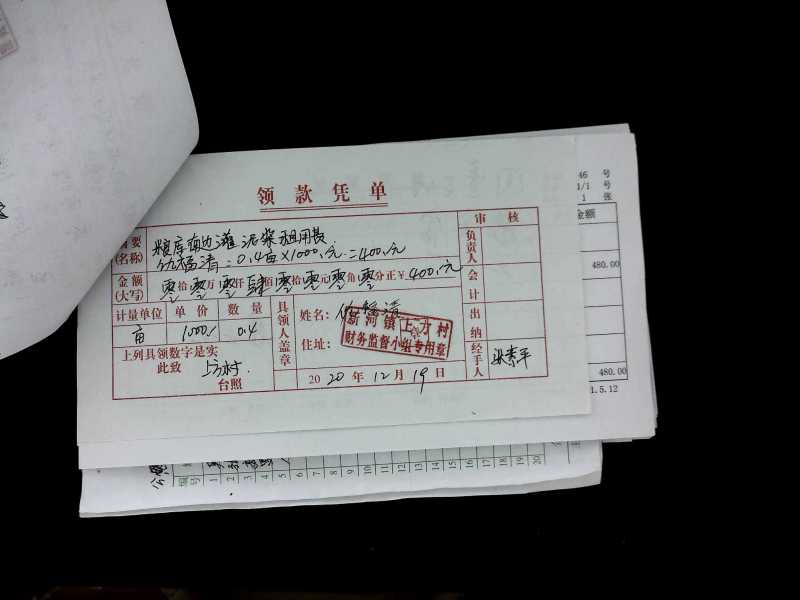 领款凭单
摘要
(名称)
粮库南边灌泥浆租用费
福清:0.4亩×1000元=400元
审核
负责人
会计
出纳
经手人
金额
(大写)
零拾零万零仟肆佰零拾零元零角零分正￥400元
计量单位 单价 数量
亩 1000 0.4
具领人盖章
姓名:
住址:
新河镇上方村
财务监督小组专用章
上列具领数字是实
此致 上方村
台照
2020年12月19日
46 号
1/1 号
1 张
金额
480.00
480.00
1.5.12
编号
1
2
3
4
5
6
7
8
9
10
11
12
13
14
15
16
17
18
19
20